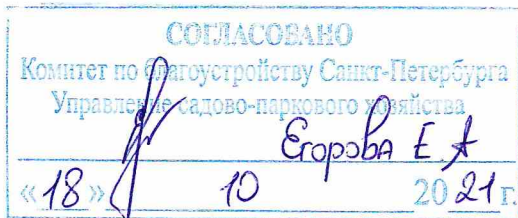 СОГЛАСОВАНО
Комитет по благоустройству Санкт-Петербурга
Управление садово-паркового хозяйства
Егорова Е А
«18» 10 2021 г.